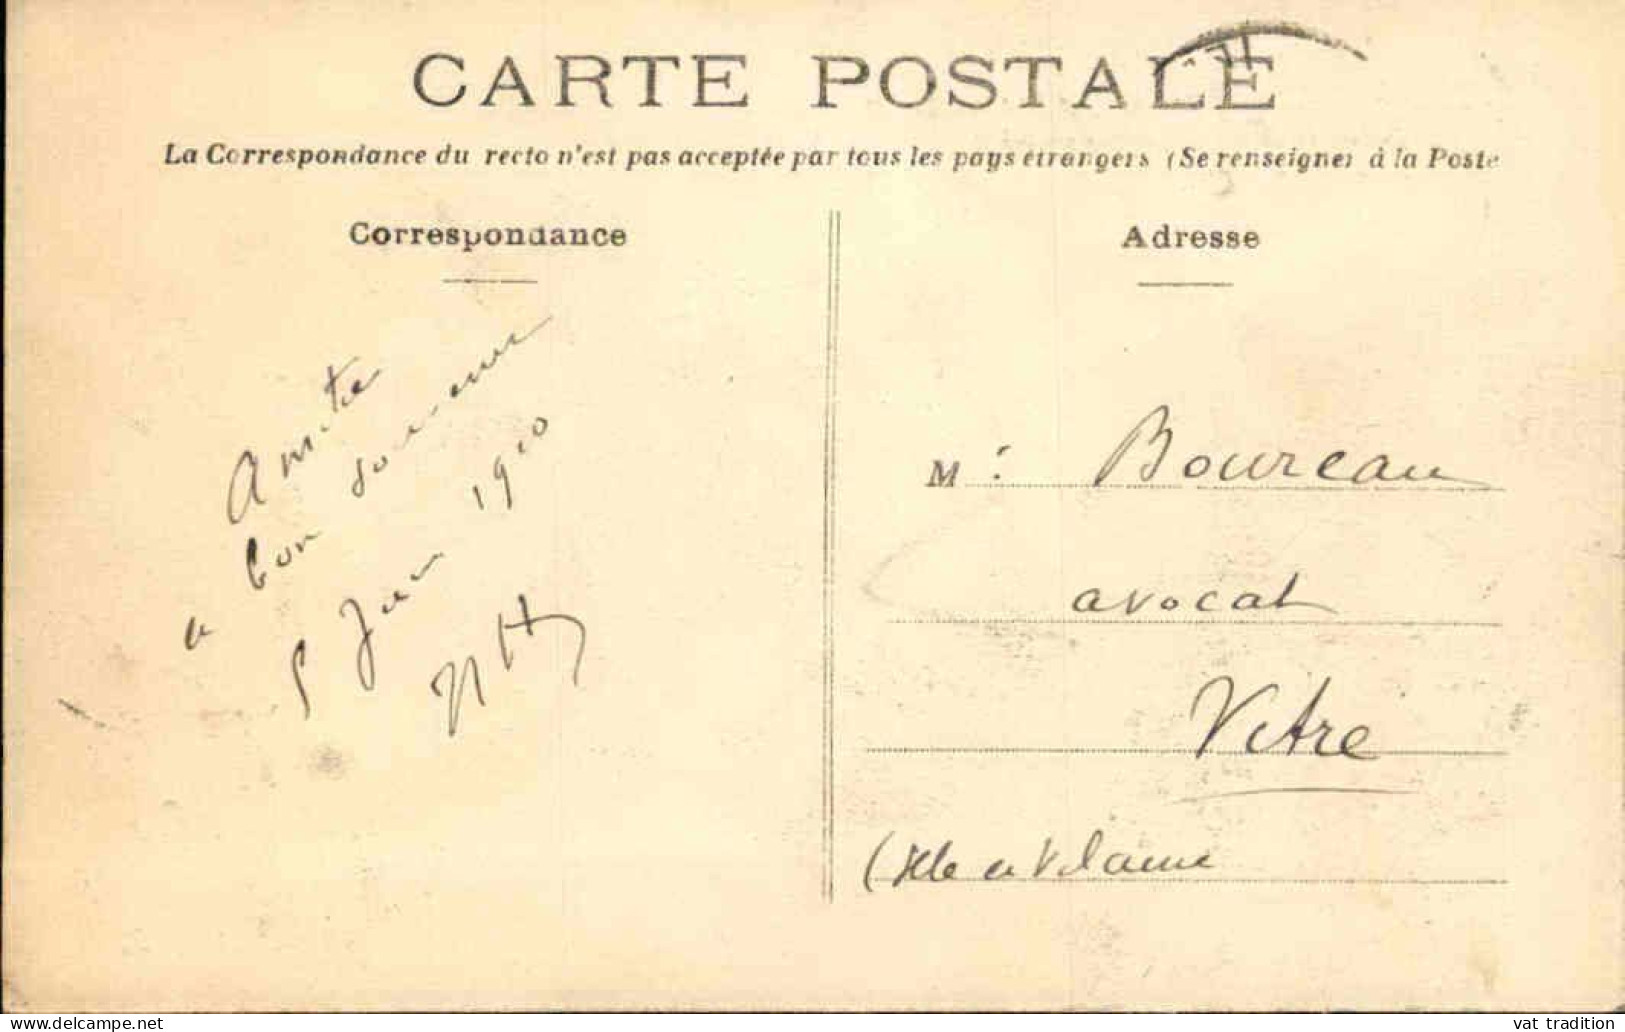 CARTE POSTALE
La Correspondance du recto n'est pas acceptée par tous les pays étrangers (Se renseigner à la Poste
Correspondance
Adresse
Amitié
bon souvenir
Juin 1910
Mr Boureau
avocat
Vitré
(Ille et Vilaine
www.delcampe.net
vat_tradition